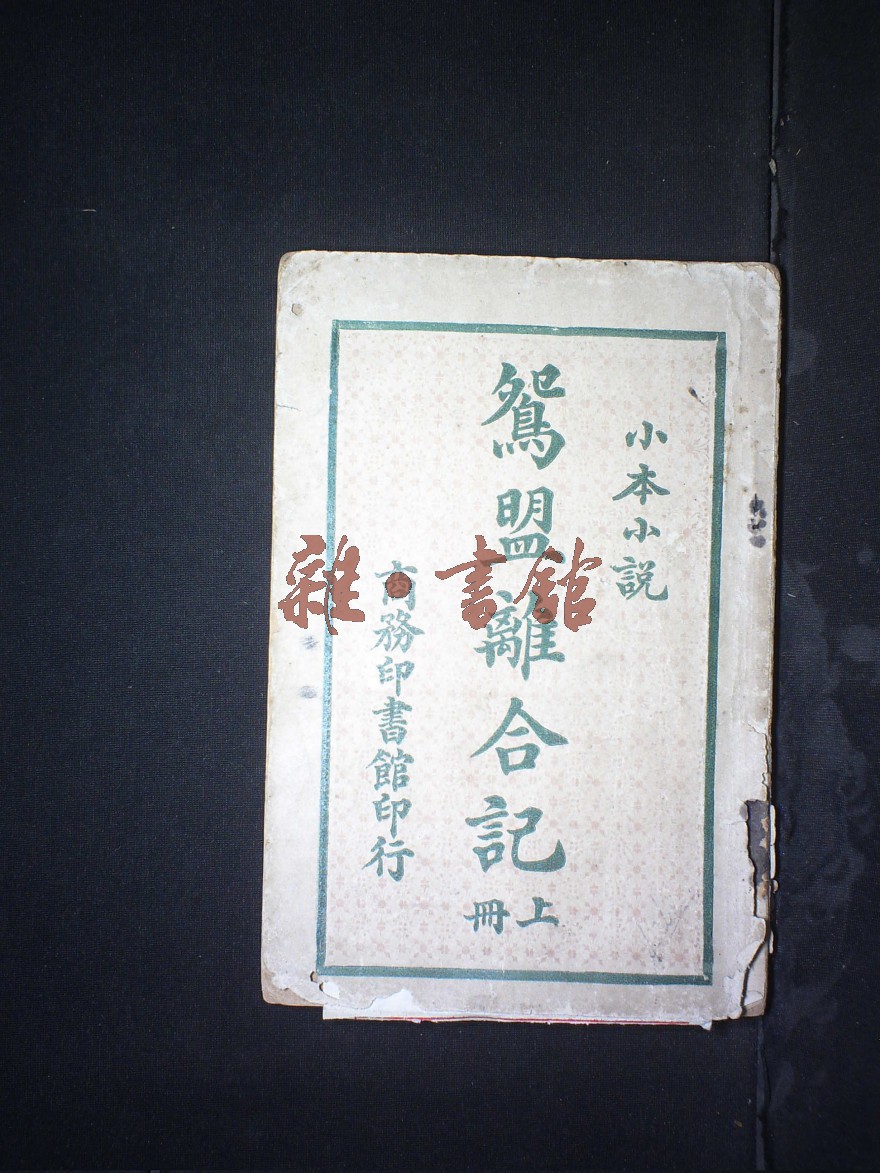 小本小説
鴛盟離合記
上冊
商務印書館印行
雜·書館